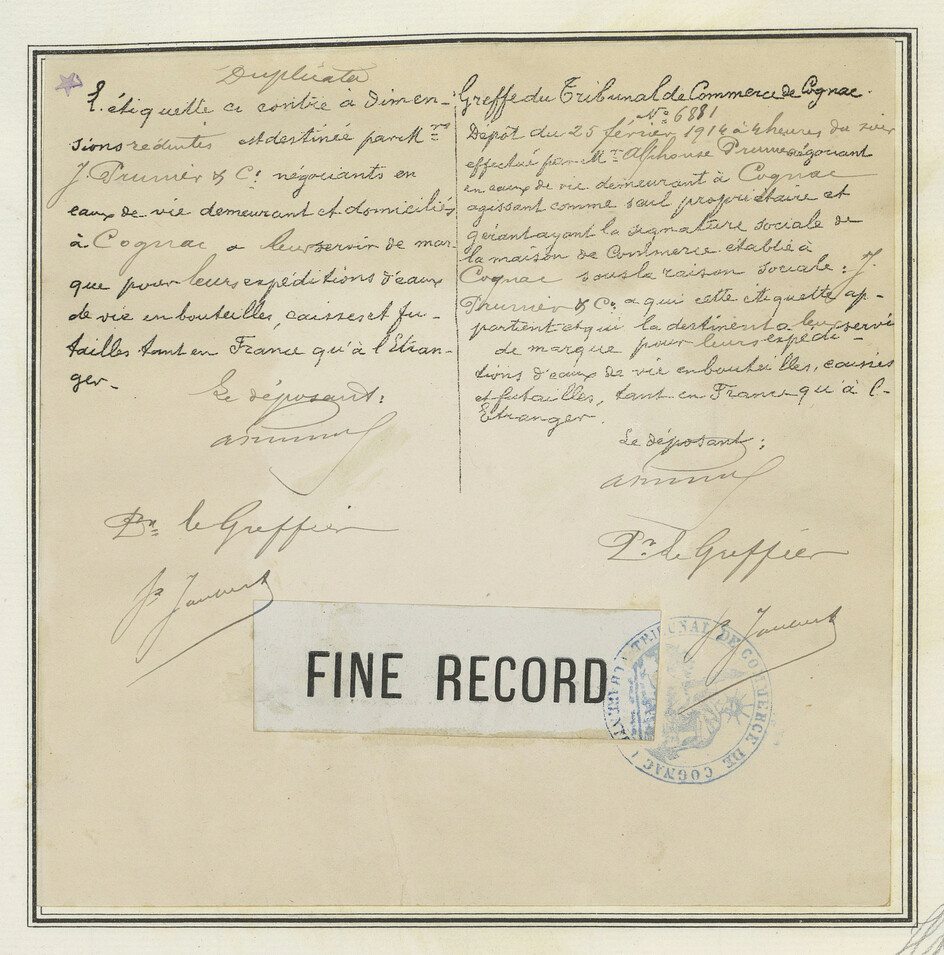 Duplicata
L'étiquette ci contre à dimen-
sions réduites est destinée par M.rs
J. Prunier & C.ie négociants en
eaux de vie demeurant et domiciliés
à Cognac a leur servir de mar-
que pour leurs expéditions d'eaux
de vie en bouteilles, caisses et fu-
tailles tant en France qu'à l'Etran-
ger.
Le déposant:
P.r le Greffier
Greffe du Tribunal de Commerce de Cognac.
N.o 6881
Dépôt du 25 février 1914 à 4 heures du soir
effectué par M.r Alphonse Prunier négociant
en eaux de vie demeurant à Cognac
agissant comme seul propriétaire et
gérant ayant la signature sociale de
la maison de Commerce etablie à
Cognac sous la raison sociale: J.
Prunier & C.o a qui cette étiquette ap-
partient et qui la destinent a leur servi
de marque pour leurs expédi-
tions d'eaux de vie en bouteilles, caisses
et futailles, tant en France qu'à l'-
Etranger.
Le déposant:
P.r le Greffier
FINE RECORD
TRIBUNAL DE COMMERCE DE COGNAC